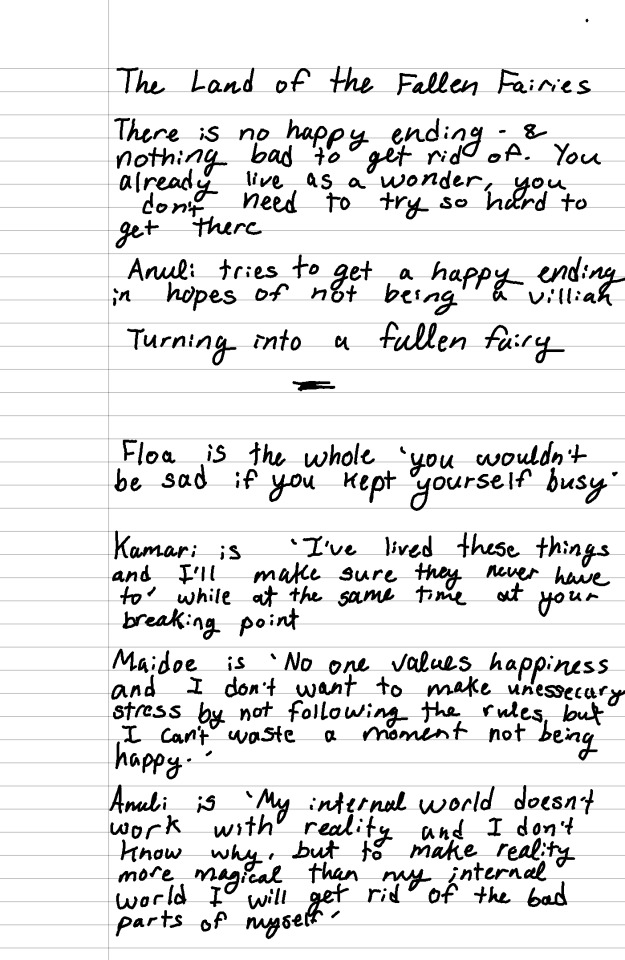 The Land of the Fallen Fairies
There is no happy ending - &
nothing bad to get rid of. You
already live as a wonder, you
don't need to try so hard to
get there
Anuli tries to get a happy ending
in hopes of not being a villian
Turning into a fullen fairy
Floa is the whole 'you wouldn't
be sad if you kept yourself busy'
Kamari is 'I've lived these things
and I'll make sure they never have
to' while at the same time at your
breaking point
Maidoe is 'No one values happiness
and I don't want to make unessecary
stress by not following the rules, but
I can't waste a moment not being
happy.'
Anuli is 'My internal world doesn't
work with reality and I don't
know why, but to make reality
more magical than my internal
world I will get rid of the bad
parts of myself'